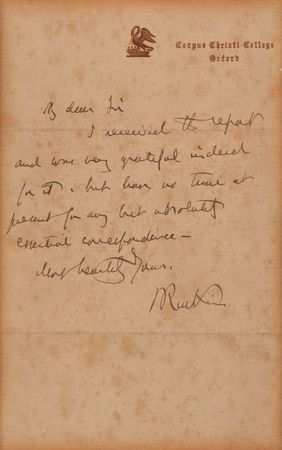 Corpus Christi College
Oxford
My dear Sir
I received the report
and was very grateful indeed
for it, but have no time at
present for any but absolutely
essential correspondence—
Most heartily Yours.
JRuskin